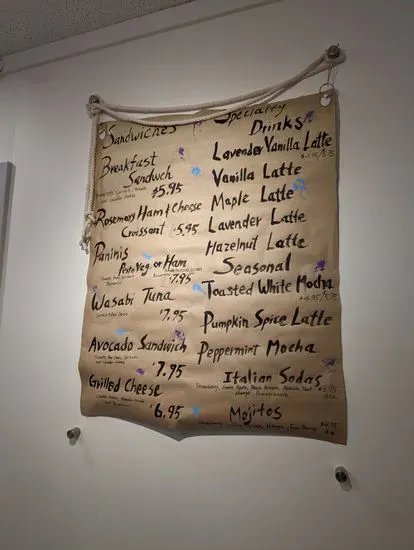 Sandwiches
Breakfast
Sandwich
$5.95
Rosemary Ham & Cheese
Croissant $5.95
Paninis
Pesto Veg. or Ham
$7.95
Wasabi Tuna
$7.95
Avocado Sandwich
$7.95
Grilled Cheese
$6.95
Specialty
Drinks
Lavender Vanilla Latte
Vanilla Latte
Maple Latte
Lavender Latte
Hazelnut Latte
Seasonal
Toasted White Mocha
$4.95/5.75
Pumpkin Spice Latte
Peppermint Mocha
Italian Sodas
Mojitos